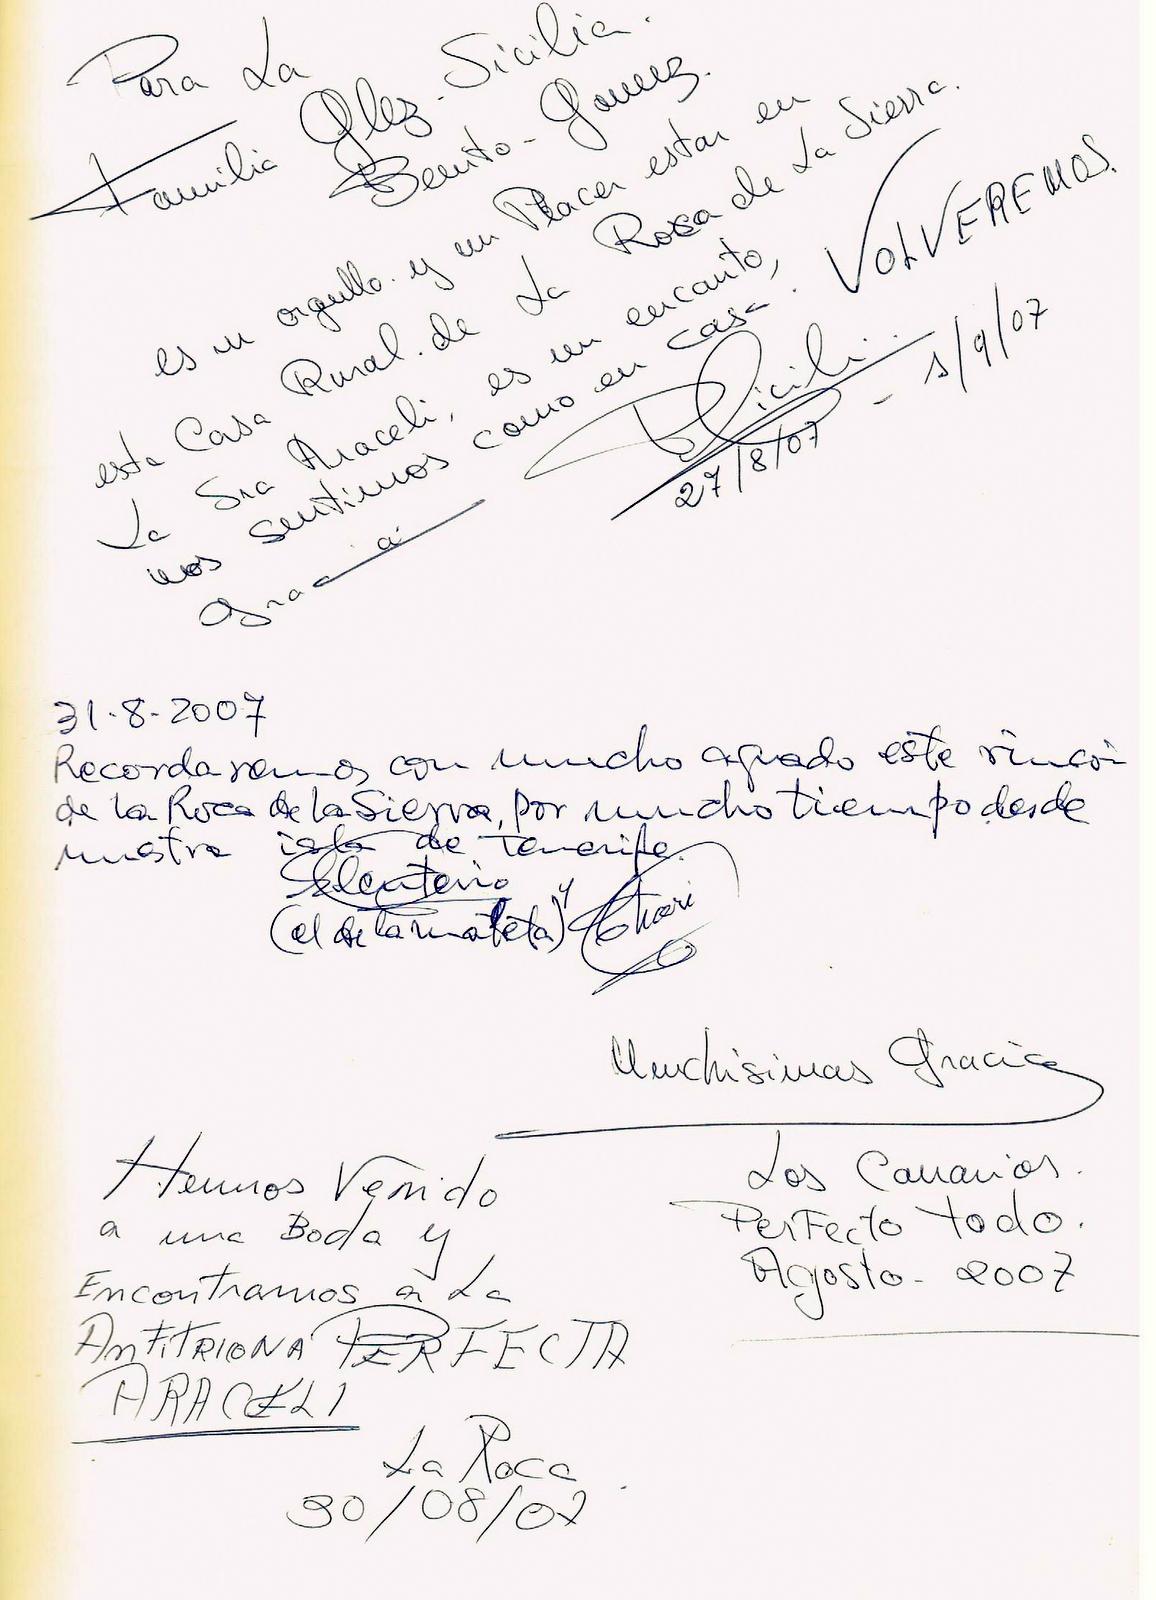 Para La
Familia Glez-Sicilia.
Benito-Gomez.
es un orgullo. y un Placer estar en
esta Casa Rural. de La Roca de La Sierra.
La Sra Araceli, es un encanto,
nos sentimos como en casa. VOLVEREMOS.
Gracia
Sicili
27/8/07 - 1/9/07
31-8-2007
Recordaremos con mucho agrado este rincón
de la Roca de la Sierra, por mucho tiempo desde
nuestra isla de tenerife.
Eleuterio
(el de la maleta) y Chari
Muchisimas Gracias
Los Canarios.
Perfecto todo.
Agosto - 2007
Hemos Venido
a una Boda y
Encontramos a La
ANFITRIONA PERFECTA
ARACELI
La Roca
30/08/07